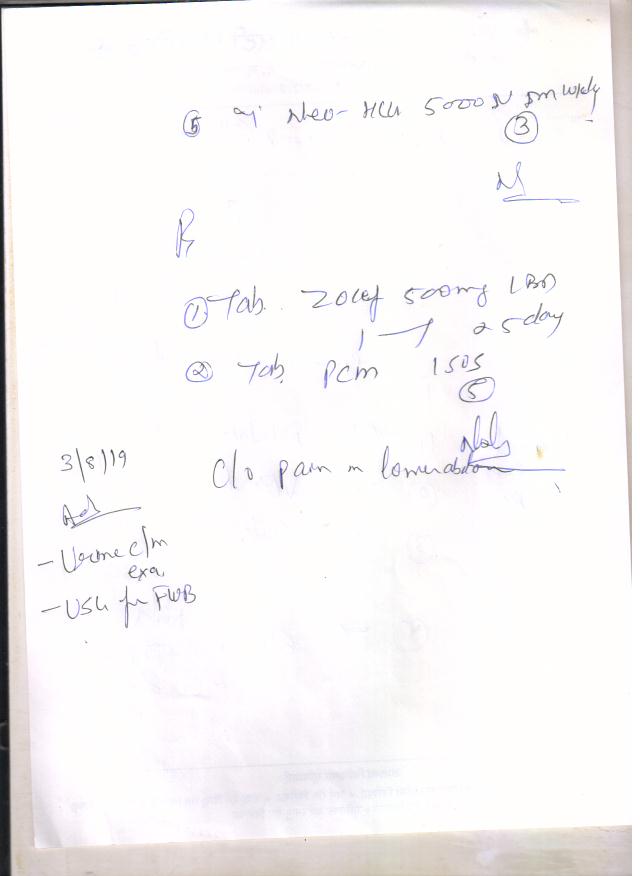 ⑤ Inj Neo-HCG 5000 IU Im wkly
③
R
① Tab. Zocef 500mg 1 BD
1 — 1 x 5 day
② Tab. PCM 1 SOS
⑤
3/8/19
C/o pain in lower abdom
Ad
- Urine c/m
exa
- USG for FWB